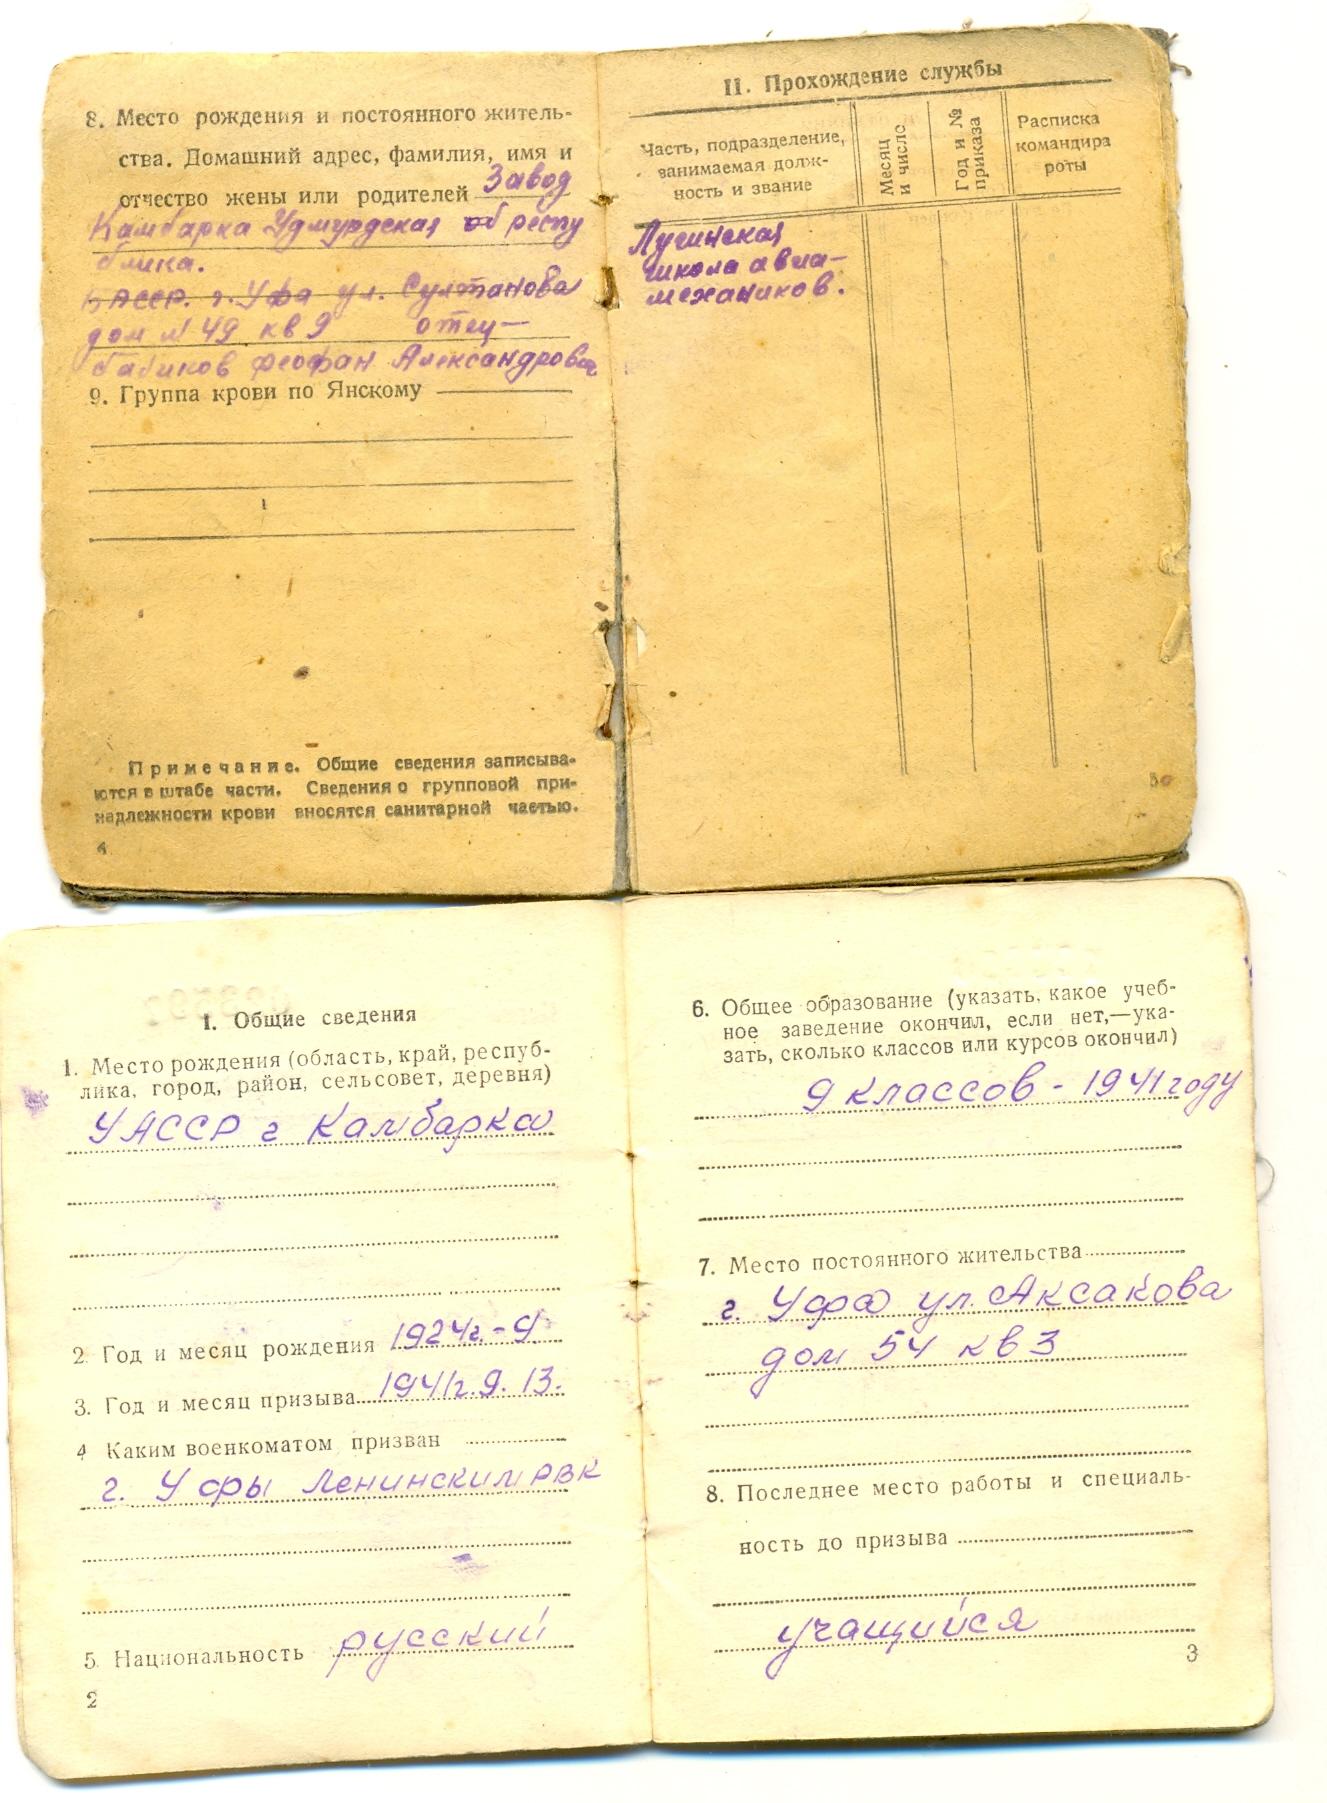 8. Место рождения и постоянного житель-
ства. Домашний адрес, фамилия, имя и
отчество жены или родителей Завод
Камбарка Удмурдская об респу
блика.
БАССР. г. Уфа ул. Султанова
дом № 49 кв 9 отец—
бабиков Феофан Александрович
9. Группа крови по Янскому
Примечание. Общие сведения записыва-
ются в штабе части. Сведения о групповой при-
надлежности крови вносятся санитарной частью.
4
II. Прохождение службы
Часть, подразделение,
занимаемая долж-
ность и звание
Месяц
и число
Год и №
приказа
Расписка
командира
роты
школа авиа-
механиков.
5
I. Общие сведения
1. Место рождения (область, край, респуб-
лика, город, район, сельсовет, деревня)
УАССР г Камбарка
2. Год и месяц рождения 1924г.-9
3. Год и месяц призыва 1941г.9.13.
4 Каким военкоматом призван
г. Уфы Ленинским РВК
5. Национальность русский
2
6. Общее образование (указать, какое учеб-
ное заведение окончил, если нет,—ука-
зать, сколько классов или курсов окончил)
9 классов - 1941 году
7. Место постоянного жительства
г. Уфа ул. Аксакова
дом 54 кв 3
8. Последнее место работы и специаль-
ность до призыва
учащийся
3